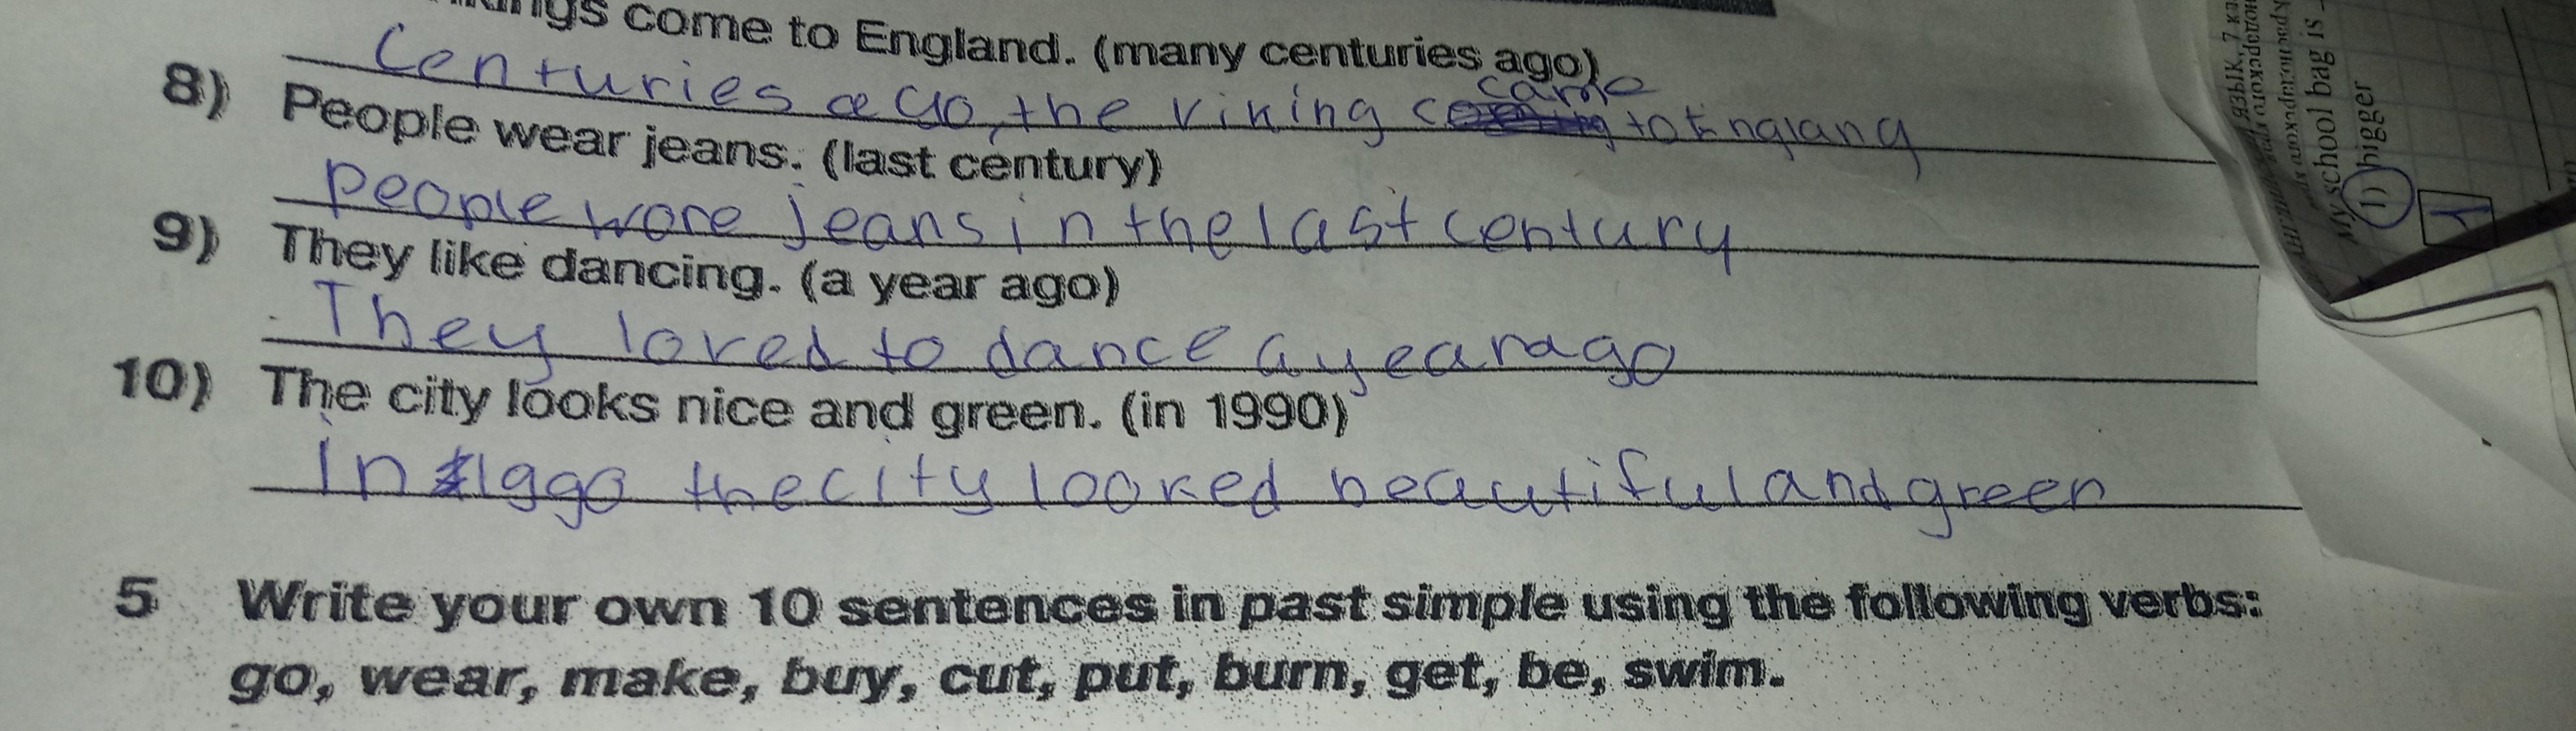 come to England. (many centuries ago)
centuries ago, the viking came to Englang
8) People wear jeans. (last century)
people wore jeans in the last century
9) They like dancing. (a year ago)
They loved to dance a year ago
10) The city looks nice and green. (in 1990)
In 1990 the city looked beautiful and green
5 Write your own 10 sentences in past simple using the following verbs:
go, wear, make, buy, cut, put, burn, get, be, swim.
ЯЗЫК, 7
My school bag is
1) bigger